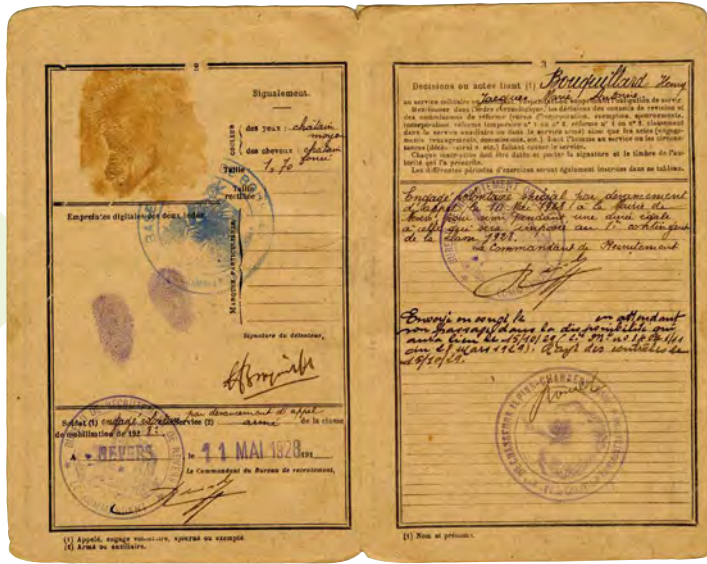 2
Signalement.
COULEUR
des yeux : châtain
moyen
des cheveux : chatain
foncé
Taille 1,70
Taille
rectifiée
Empreintes digitales des deux index.
MARQUES PARTICULIÈRES
Signature du détenteur,
Soldat (1) engagé service (2) par devancement d'appel
armé de la classe
de mobilisation de 192
A NEVERS le 11 MAI 1928 191
Le Commandant du Bureau de recrutement,
(1) Appelé, engagé volontaire, ajourné ou exempté
(2) Armé ou auxiliaire.
3
Décisions ou actes liant (1) Bouquillard Henry
Jacques Marie Antoine
au service militaire ou l'obligation de servir.
Mentionner dans l'ordre chronologique, les décisions des conseils de revision et
des commissions de réforme (
incorporation, réforme temporaire n° 1 ou n° 2, réforme n° 1 ou n° 2, classement
dans le service auxiliaire ou dans le service armé) ainsi que les actes (engage-
ments rengagements, commissions, etc.), liant l'homme au service ou les circons-
tances (décès, etc.) faisant cesser le service.
Chaque inscription doit être datée et porter la signature et le timbre de l'auto-
rité qui l'a prescrite.
Les différentes périodes d'exercices seront également inscrites dans ce tableau.
Engagé volontaire spécial par devancement
d'appel le 10 Mai 1928 à la Mairie de
pour servir pendant une durée égale
à celle qui sera imposée au 1 contingent
de la classe 1928.
Le Commandant de Recrutement
Envoyé en congé le en attendant
son passage dans la disponibilité qui
aura lieu le 15/10/29
du 27 Mars 1929). Rayé des contrôles le
15/10/29.
(1) Nom et prénoms.